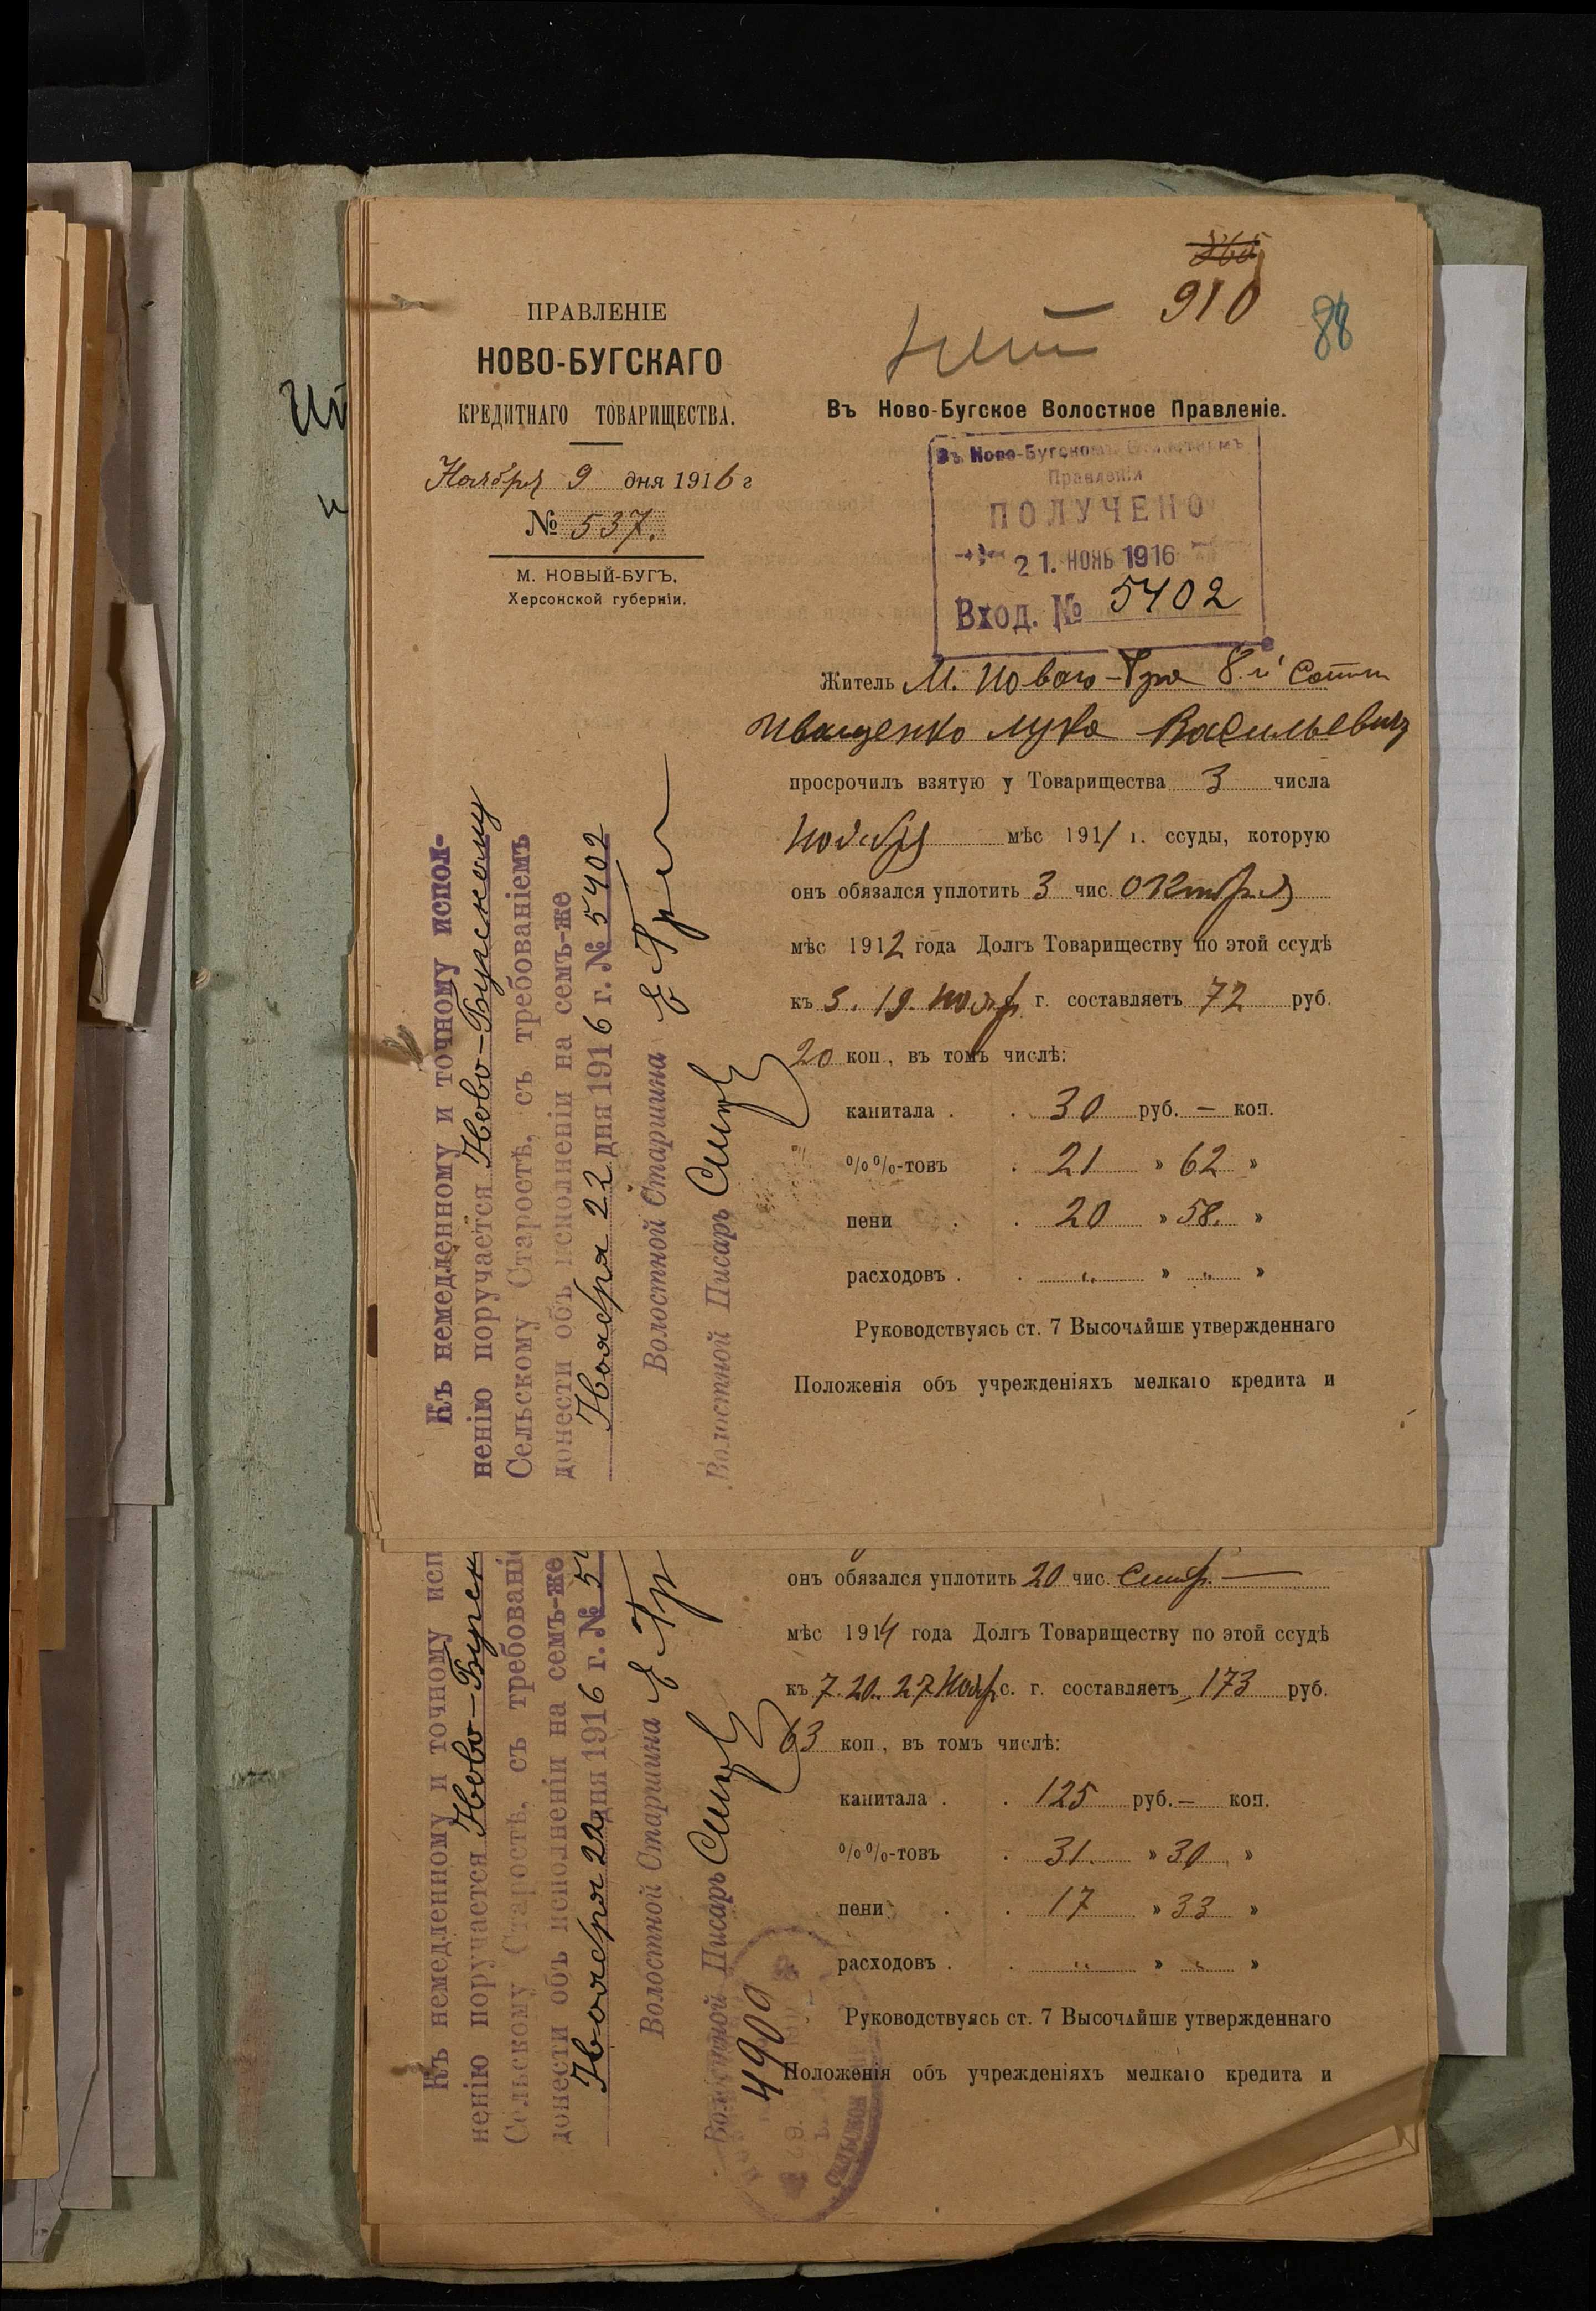 910
88
нет
ПРАВЛЕНІЕ
НОВО-БУГСКАГО
КРЕДИТНАГО ТОВАРИЩЕСТВА.
Ноября 9 дня 1916 г
№ 537.
М. НОВЫЙ-БУГЪ,
Херсонской губерніи.
Въ Ново-Бугское Волостное Правленіе.
Въ Ново-Бугскомъ Волостномъ
Правленіи
ПОЛУЧЕНО
21. НОЯБ 1916
Вход. № 5402
Житель М. Новаго-Буга 8-й Сотни
Иващенко Лука Васильевичъ
просрочилъ взятую у Товарищества 3 числа
Ноября мѣс 1911 г. ссуды, которую
онъ обязался уплотить 3 чис. Октября
мѣс 1912 года Долгъ Товариществу по этой ссудѣ
къ 5. 19. Нояб. г. составляетъ 72 руб.
20 коп., въ томъ числѣ:
капитала . . 30 руб. — коп.
%%-товъ . 21 » 62 »
пени . . 20 » 58. »
расходовъ . . „ » „ »
Руководствуясь ст. 7 Высочайше утвержденнаго
Положенія объ учрежденіяхъ мелкаго кредита и
Къ немедленному и точному испол-
ненію поручается Ново-Бугскому
Сельскому Старостѣ, съ требованіемъ
донести объ исполненіи на семъ-же
Ноября 22 дня 1916 г. № 5402
Волостной Старшина
Волостной Писарь
онъ обязался уплотить 20 чис. Сентр. —
мѣс 1914 года Долгъ Товариществу по этой ссудѣ
къ 7. 20. 27 Нояр с. г. составляетъ 173 руб.
63 коп., въ томъ числѣ:
капитала . . 125 руб. — коп.
%%-товъ . 31. » 30 »
пени . . 17 » 33 »
расходовъ . . „ » „ »
Руководствуясь ст. 7 Высочайше утвержденнаго
Положенія объ учрежденіяхъ мелкаго кредита и
Къ немедленному и точному исп
ненію поручается Ново-Бугск
Сельскому Старостѣ, съ требовані
донести объ исполненіи на семъ-же
Ноября 22 дня 1916 г. № 5
Волостной Старшина
Волостной Писарь
4909